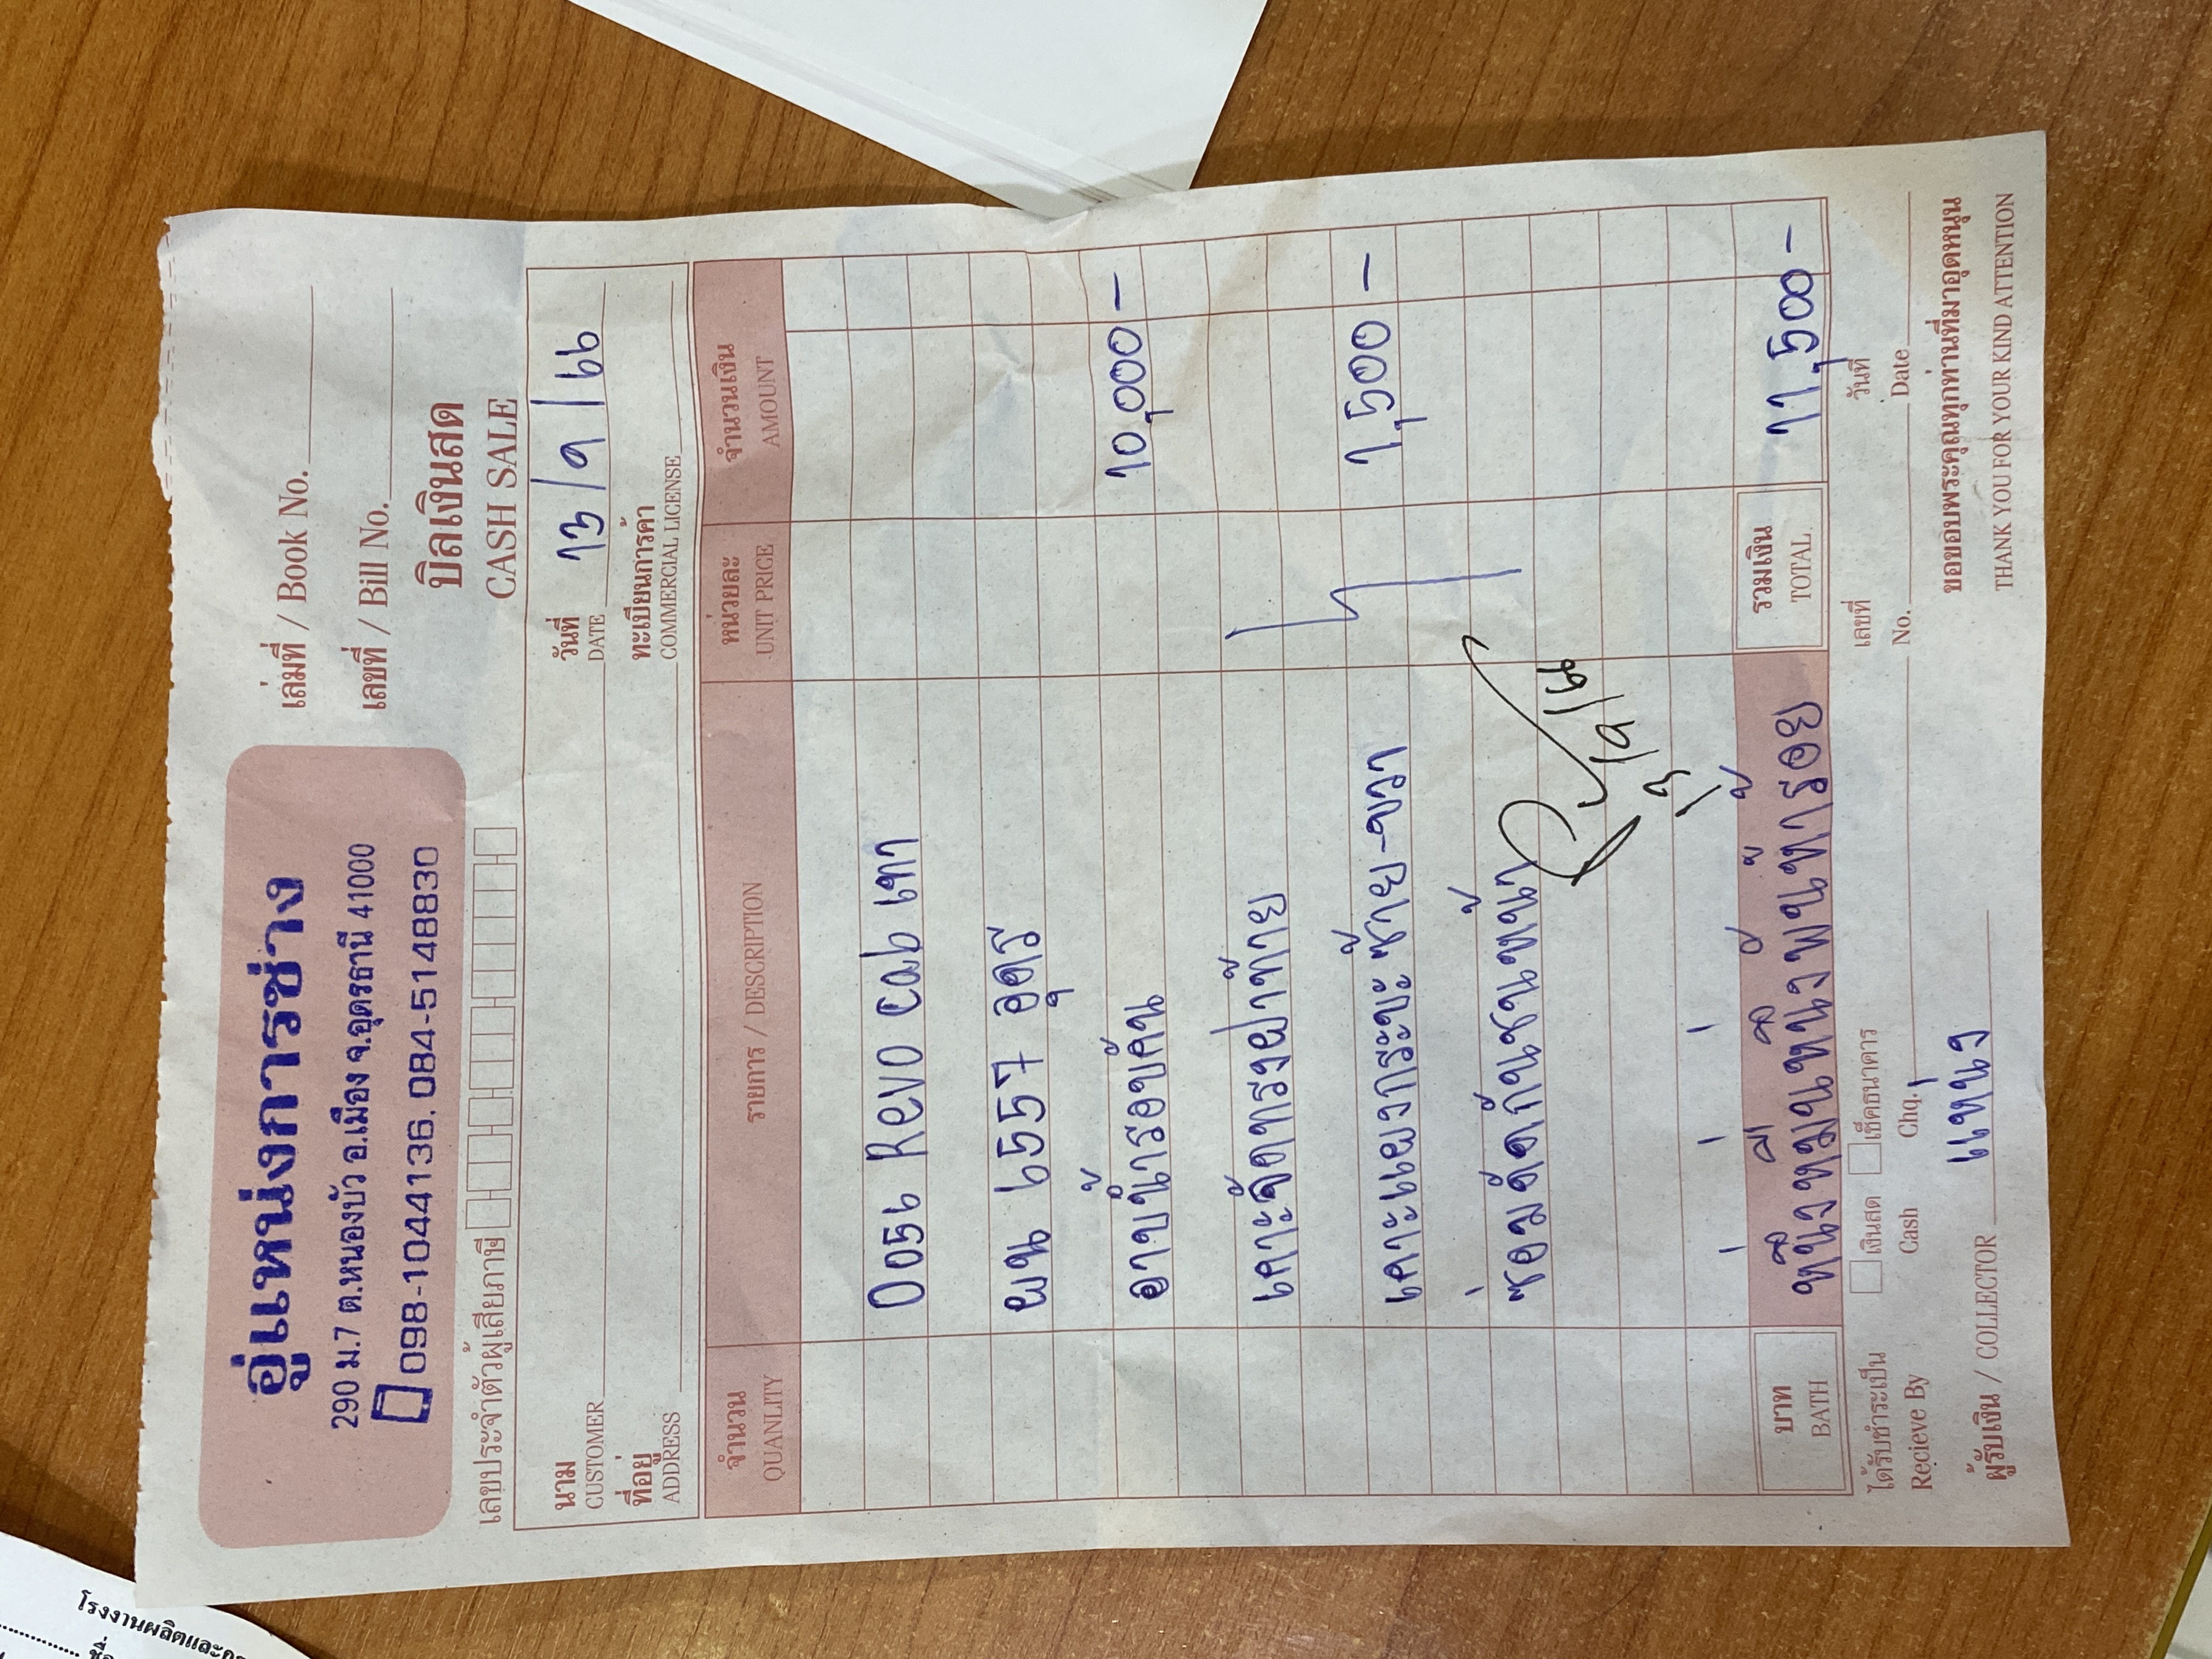 อู่แหน่งการช่าง
290 ม.7 ต.หนองบัว อ.เมือง จ.อุดรธานี 41000
098-1044136, 084-5148830
เล่มที่ / Book No.
เลขที่ / Bill No.
บิลเงินสด
CASH SALE
เลขประจำตัวผู้เสียภาษี
นาม
CUSTOMER
วันที่
DATE
13/9/66
ที่อยู่
ADDRESS
ทะเบียนการค้า
COMMERCIAL LICENSE
จำนวน
QUANLITY
รายการ / DESCRIPTION
หน่วยละ
UNIT PRICE
จำนวนเงิน
AMOUNT
Revo cab เทา
ผน 6557 อุดร
อาบน้ำรอบคัน 10,000-
เคาะจัดทรงฝาท้าย
เคาะแผงกระบะซ้าย-ขวา 1,500-
ซ่อมดัดกันชนหน้า
บาท
BATH
หนึ่งหมื่นหนึ่งพันห้าร้อย
รวมเงิน
TOTAL
11,500-
ได้รับชำระเป็น
Recieve By
เงินสด
Cash
เช็คธนาคาร
Chq.
เลขที่
No.
วันที่
Date
ผู้รับเงิน / COLLECTOR แหน่ง
ขอขอบพระคุณทุกท่านที่มาอุดหนุน
THANK YOU FOR YOUR KIND ATTENTION
โรงงานผลิตและ